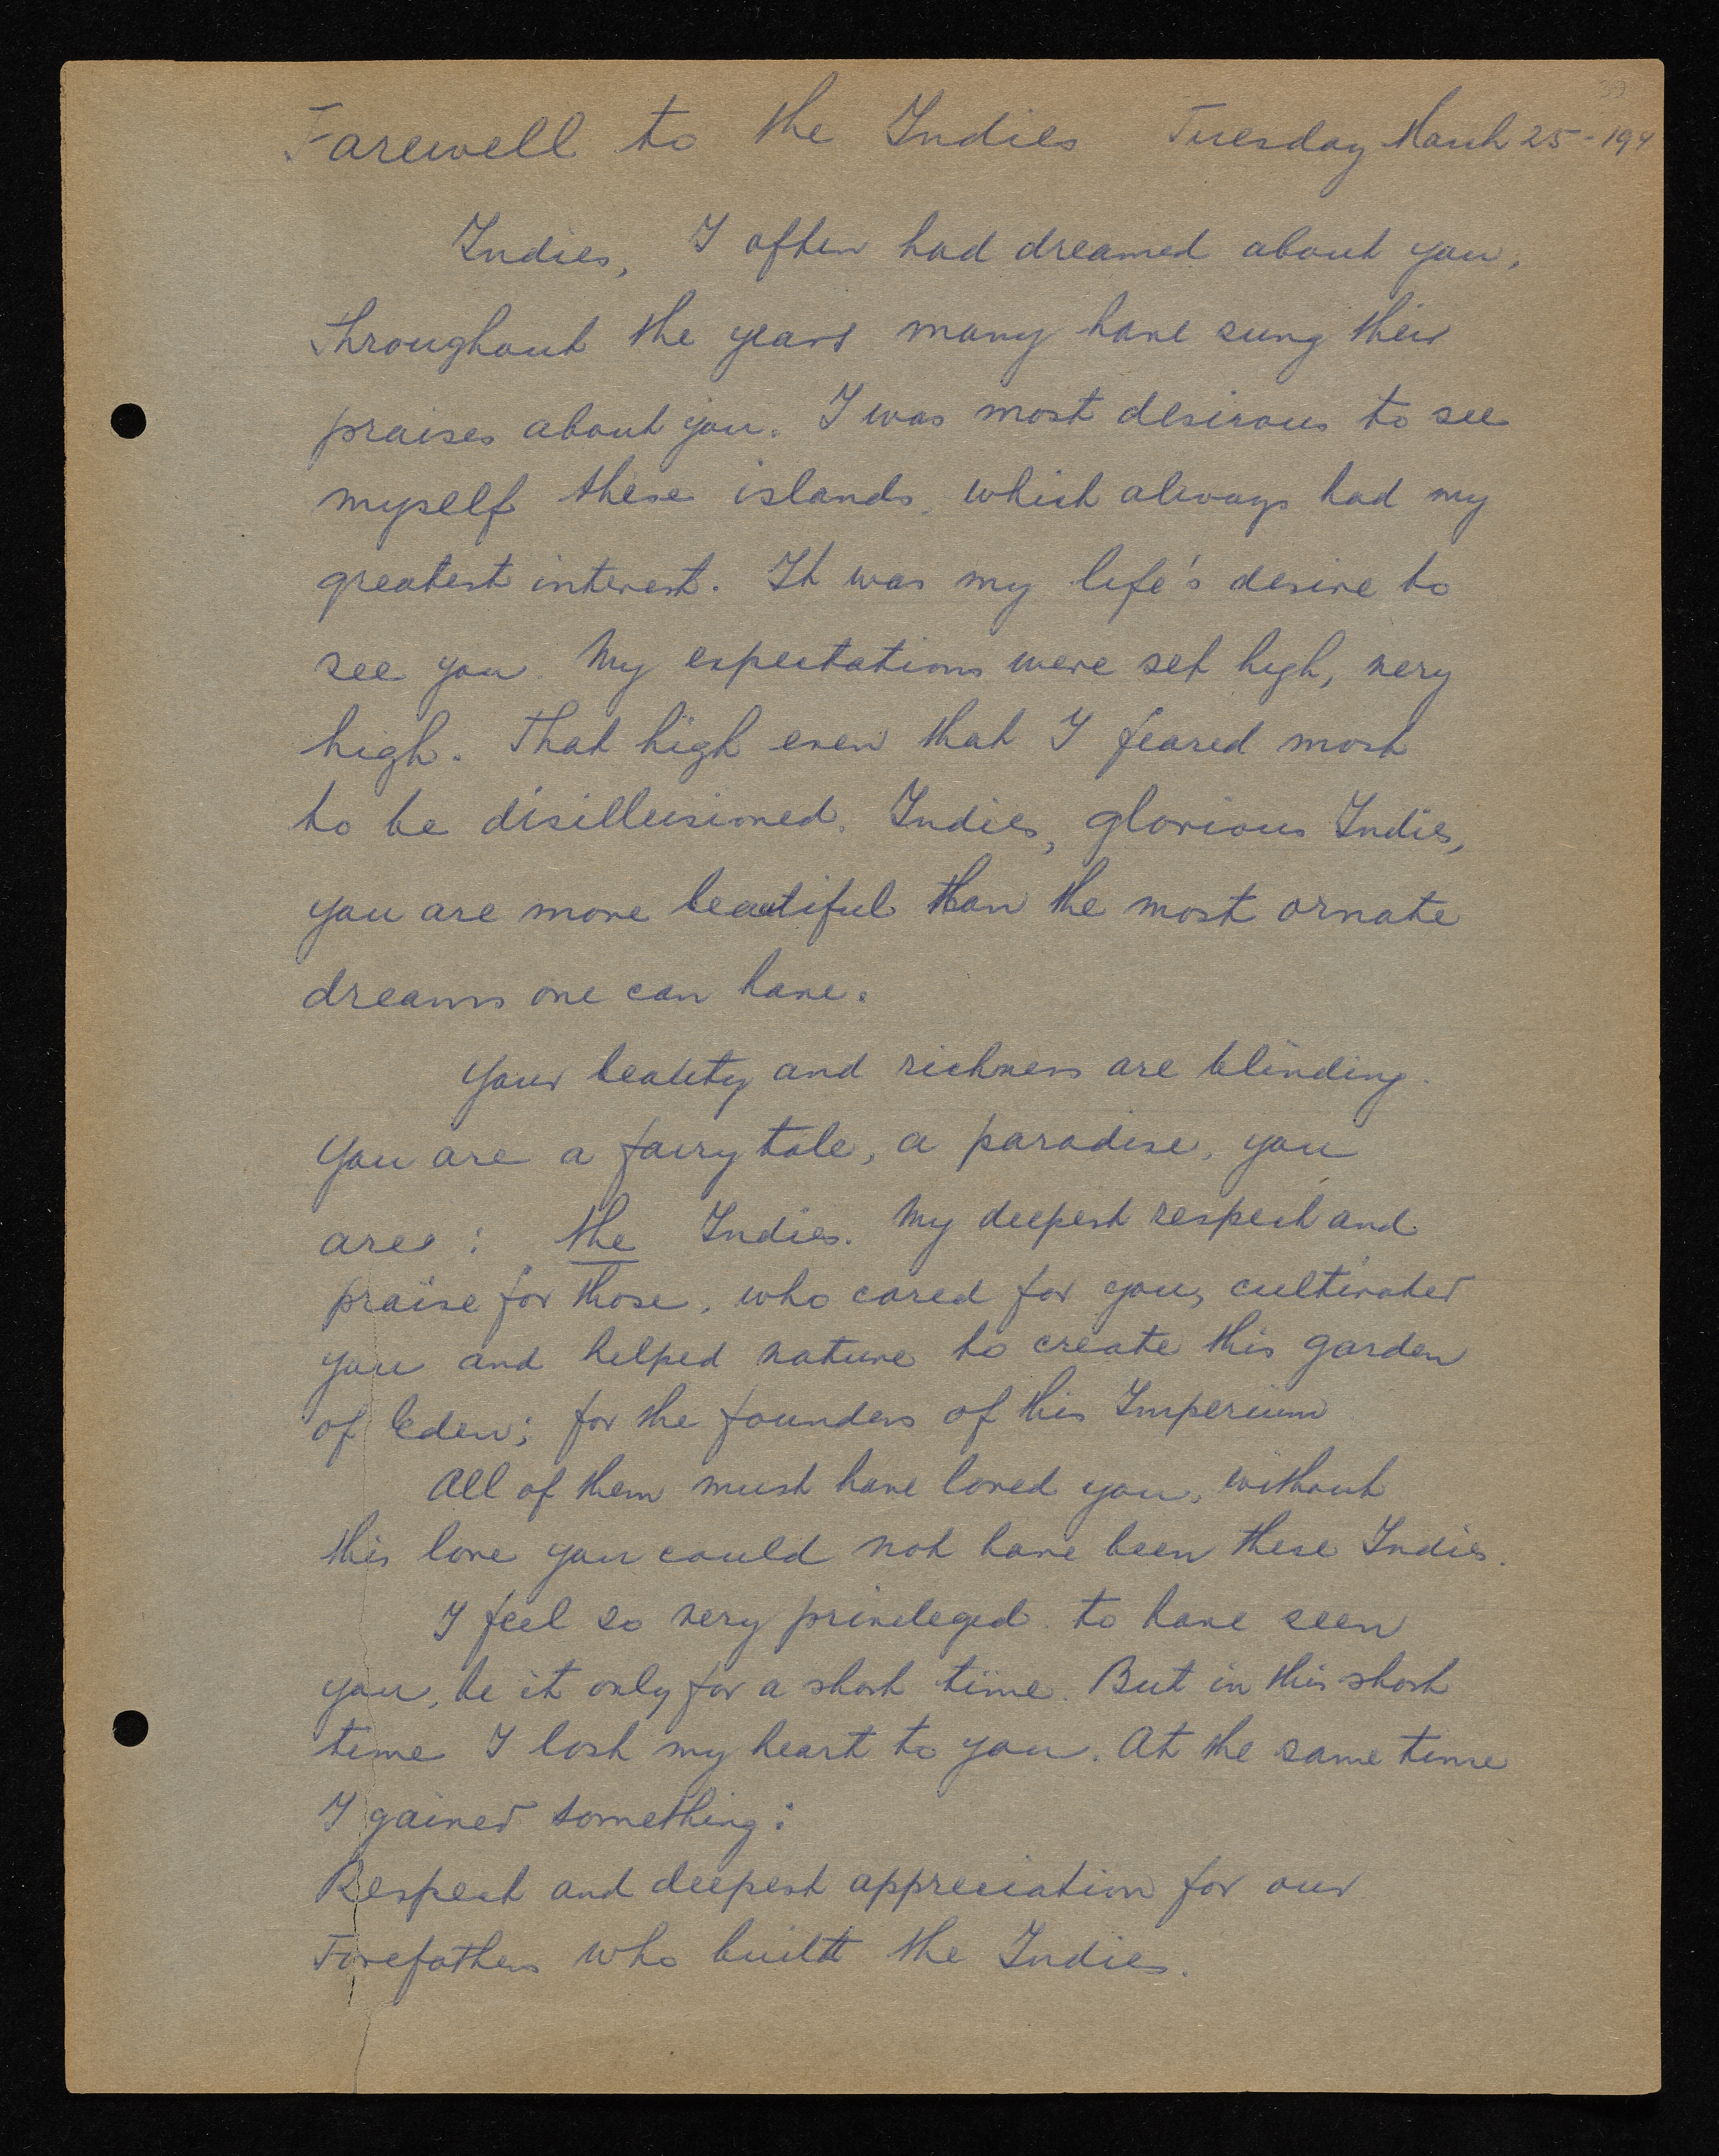 39
Farewell to the Indies Tuesday March 25-194
Indies, I often had dreamed about you,
throughout the years many have sung their
praises about you. I was most desirous to see
myself these islands, which always had my
greatest interest. It was my life's desire to
see you. My expectations were set high, very
high. That high even that I feared most
to be disillusioned. Indies, glorious Indies,
you are more beautiful than the most ornate
dreams one can have.
Your beauty and richness are blinding.
You are a fairy tale, a paradise, you
are: the Indies. My deepest respect and
praise for those, who cared for you, cultivated
you and helped nature to create this garden
of Eden; for the founders of this Imperium
All of them must have loved you, without
this love you could not have been these Indies.
I feel so very privileged to have seen
you, be it only for a short time. But in this short
time I lost my heart to you. At the same time
I gained something:
Respect and deepest appreciation for our
Forefathers who built the Indies.